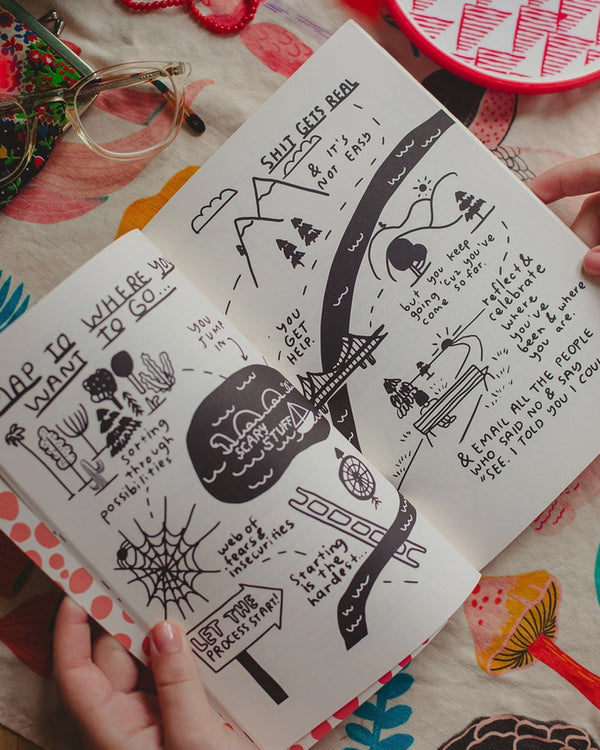 MAP TO WHERE YOU
WANT TO GO...
sorting
through
possibilities
web of
fears &
insecurities
LET THE
PROCESS START!
Starting
is the
hardest...
YOU
JUMP
IN
SCARY
STUFF
YOU
GET
HELP.
SHIT GETS REAL
& IT'S
NOT EASY!
but you keep
going 'cuz you've
come so far.
reflect &
celebrate
where
you've
been & where
you are.
& EMAIL ALL THE PEOPLE
WHO SAID NO & SAY
"SEE. I TOLD YOU I COUL